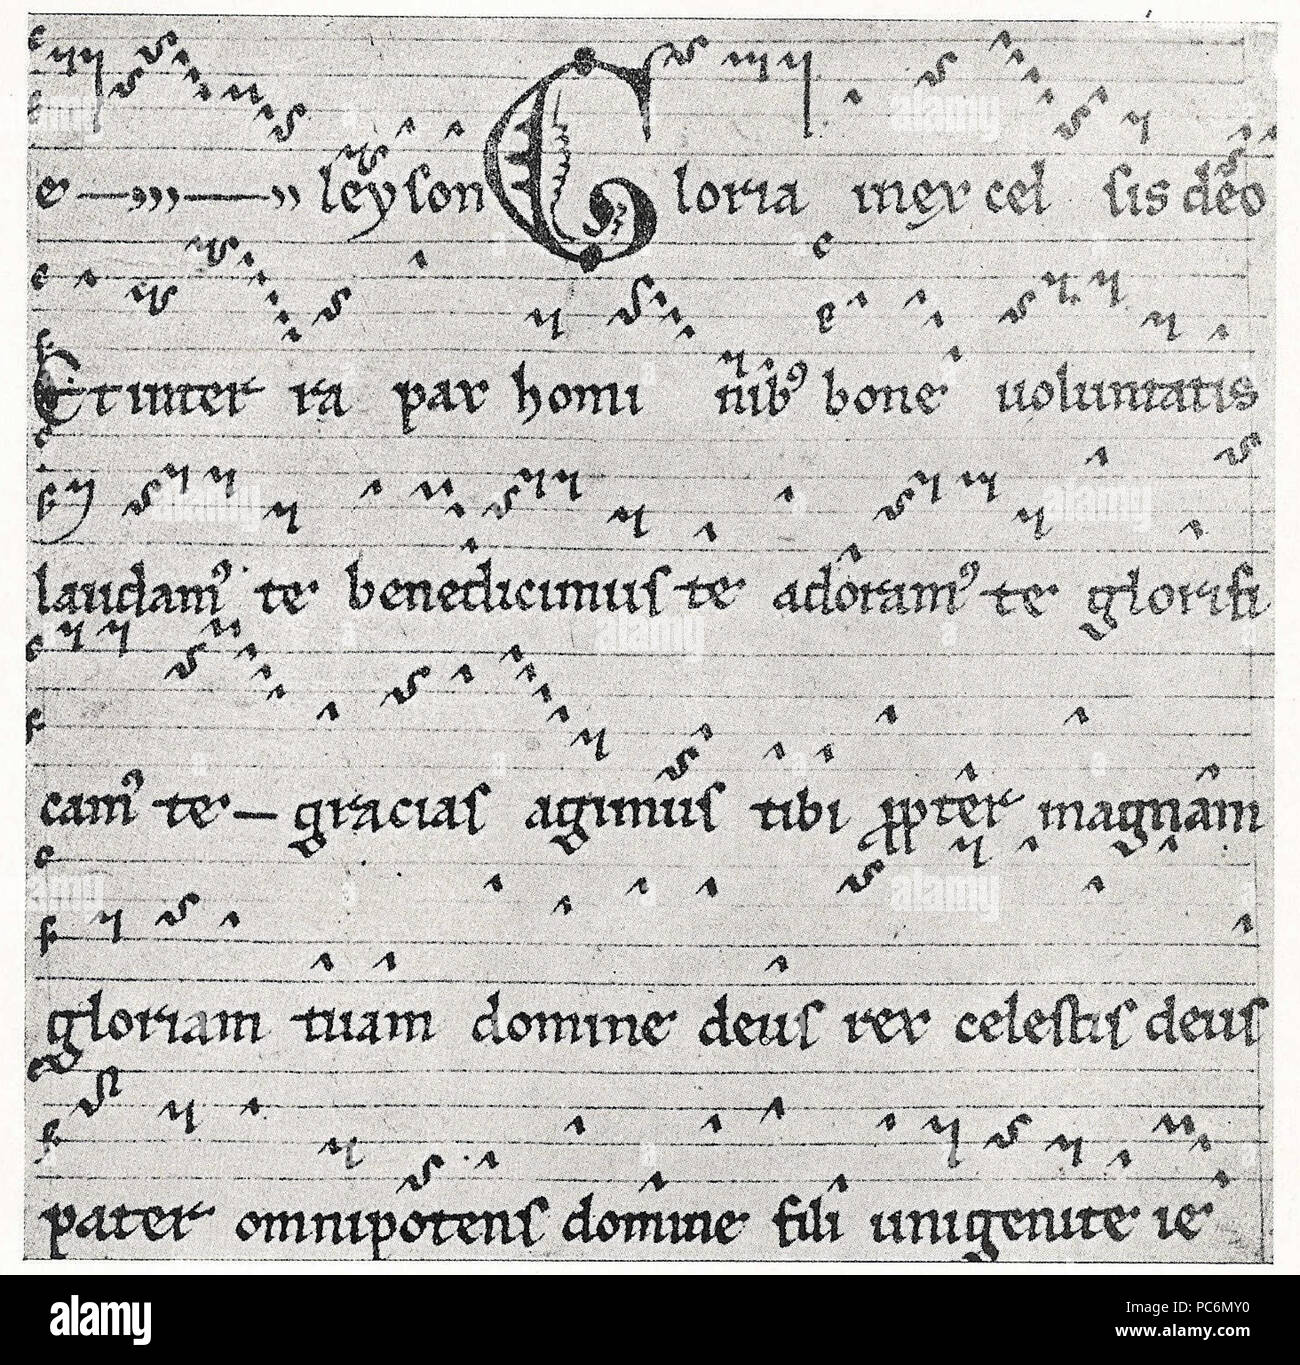 e — ,,,, — ,, leyson Gloria inexcel sis dēo
Et inter ra pax homi nib9 bone uoluntatis
laudam9 te benedicimus te adoram9 te glorifi
cam9 te — gracias agimus tibi propter magnam
gloriam tuam domine deus rex celestis deus
pater omnipotens domine fili unigenite ie
alamy
Image ID: PC6MY0
www.alamy.com